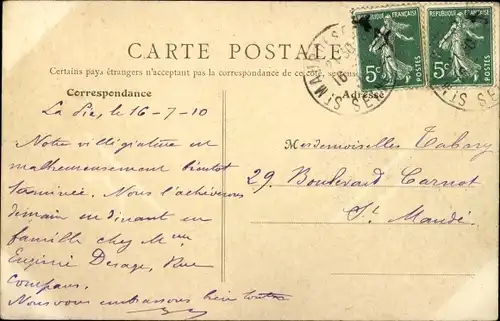 CARTE POSTALE
Certains pays étrangers n'acceptant pas la correspondance de ce côté, se
Correspondance
Adresse
RÉPUBLIQUE FRANÇAISE
5c
POSTES
5c
POSTES
ST MAUR
SEINE
La 16-7-10
Notre villégiature est
malheureusement bientôt
terminée. Nous l'achèverons
demain en dinant en
famille chez Mme
Eugénie Rue
Compans.
Nous vous embrassons bien toutes
Mesdemoiselles Tabary
29, Boulevard Carnot
St Mandé.